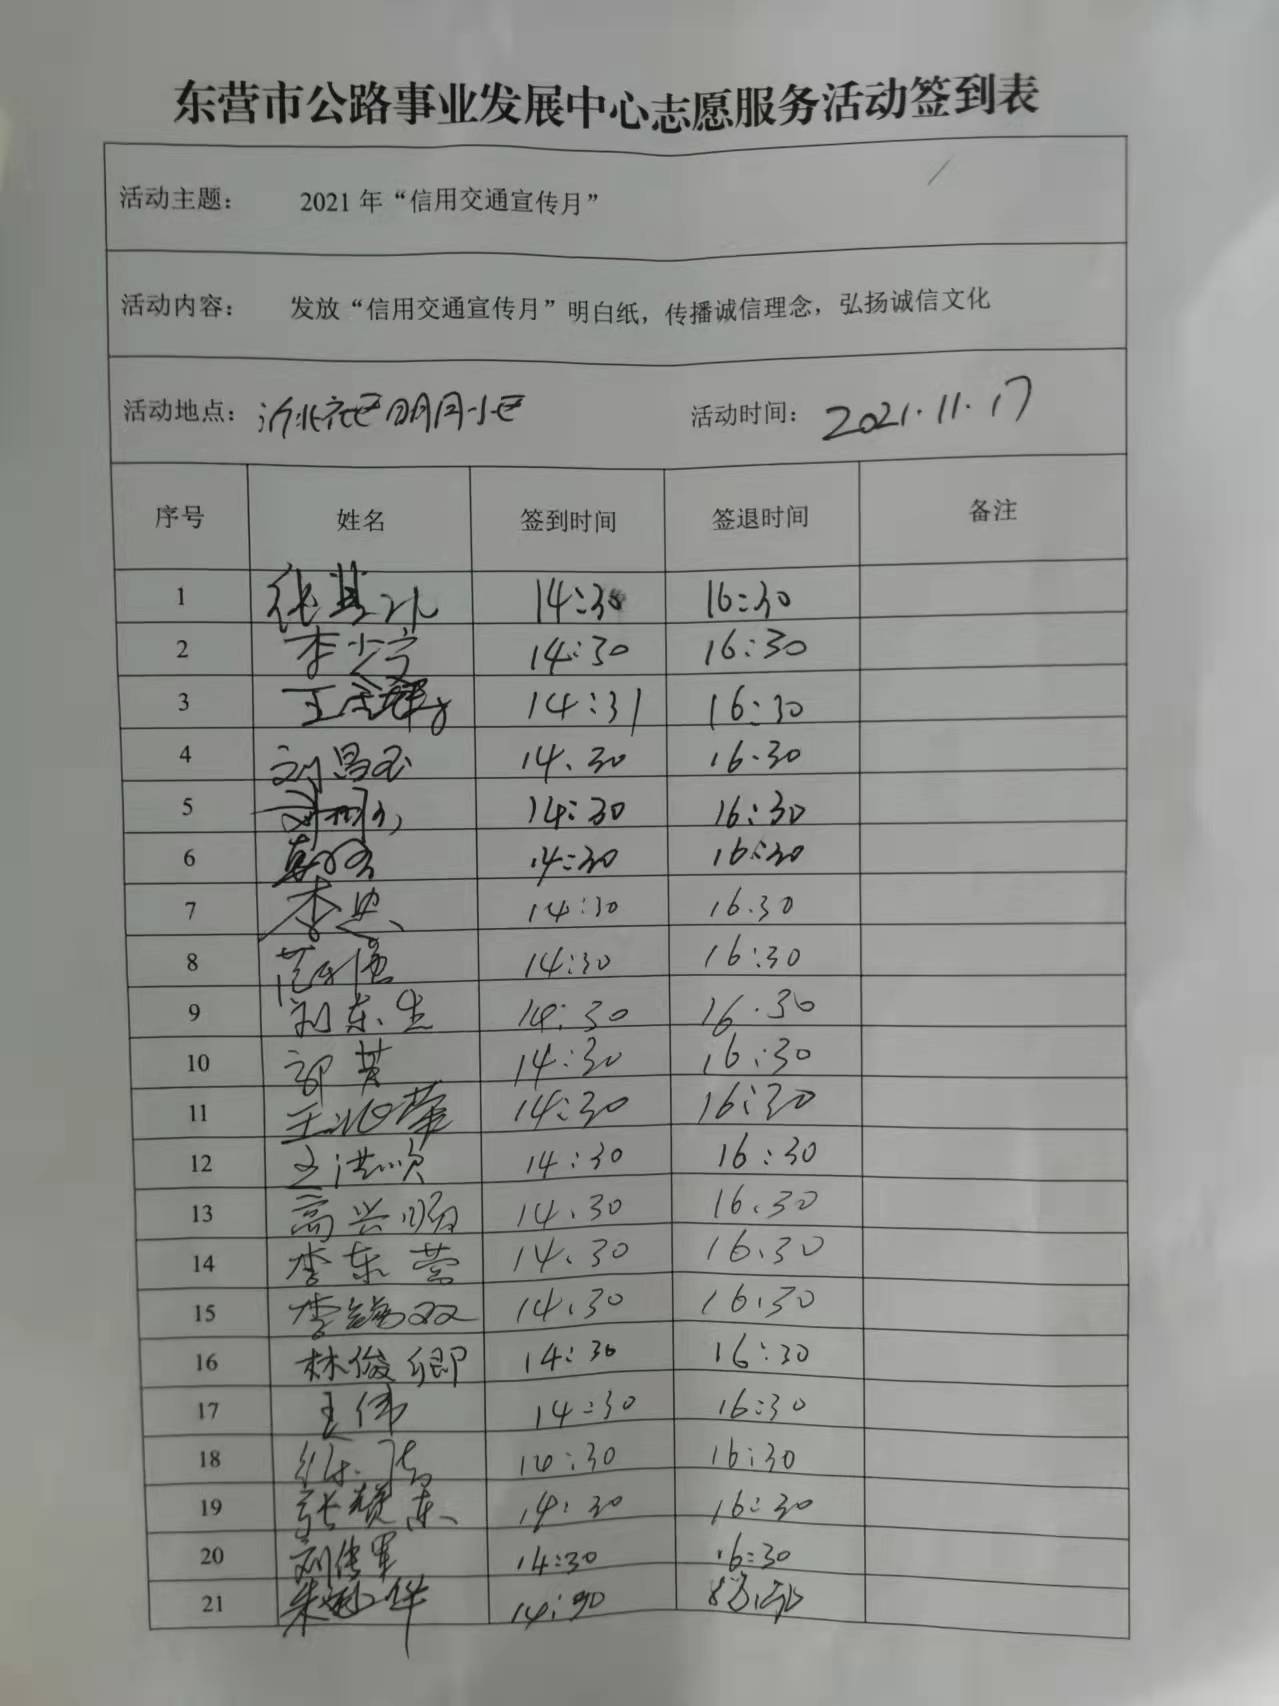 东营市公路事业发展中心志愿服务活动签到表
活动主题： 2021 年“信用交通宣传月”
活动内容： 发放“信用交通宣传月”明白纸，传播诚信理念，弘扬诚信文化
活动地点： 社区明月小区 活动时间： 2021.11.17
序号 姓名 签到时间 签退时间 备注
1 14:30 16:30
2 李少宁 14:30 16:30
3 王 14:31 16:30
4 刘昌玉 14.30 16.30
5 14:30 16:30
6 14:30 16:30
7 李 14:30 16.30
8 范 14:30 16:30
9 刘东生 14:30 16.30
10 郭菁 14:30 16:30
11 王兆荣 14:30 16:30
12 王洪顺 14:30 16:30
13 高兴顺 14.30 16.30
14 李东营 14.30 16.30
15 李 双 14.30 16.30
16 林俊卿 14:30 16:30
17 王伟 14:30 16:30
18 徐 14:30 16:30
19 张 东 14:30 16:30
20 刘传军 14:30 16:30
21 朱